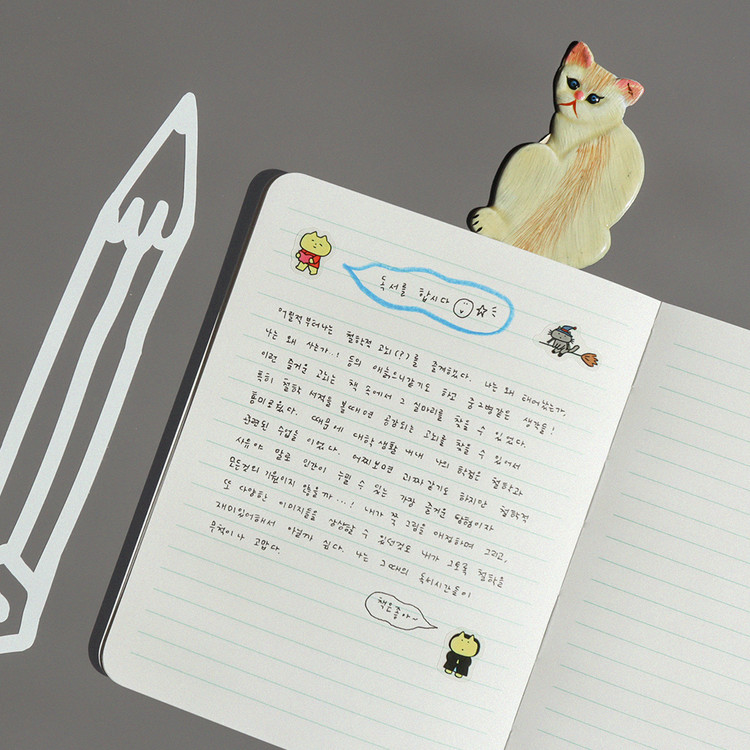 독서를 합시다
어릴적부터 나는 철학적 고뇌(?)를 즐겨했다. 나는 왜 태어났는가,
나는 왜 사는가..! 등의 애늙으니같기도 하고 중2병같은 생각들!
이런 즐거운 고뇌는 책 속에서 그 실마리를 찾을 수 있었다.
특히 철학 서적을 볼때면 공감되는 고뇌를 찾을 수 있어서
흥미로웠다. 때문에 대학생활 내내 나의 학점은 철학과
관련된 수업들이었다. 어찌보면 괴짜같기도 하지만 철학적
사유야 말로 인간이 누릴 수 있는 가장 즐거운 덕목이자
모든것의 기원이지 않을까...! 내가 쭉 그림을 애정하며 그리고,
또 다양한 이미지들을 감상할 수 있던것도 내가 그토록 철학을
재미있어해서 아닐까 싶다. 나는 그때의 독서시간들이
무척이나 고맙다.
책은 좋아~